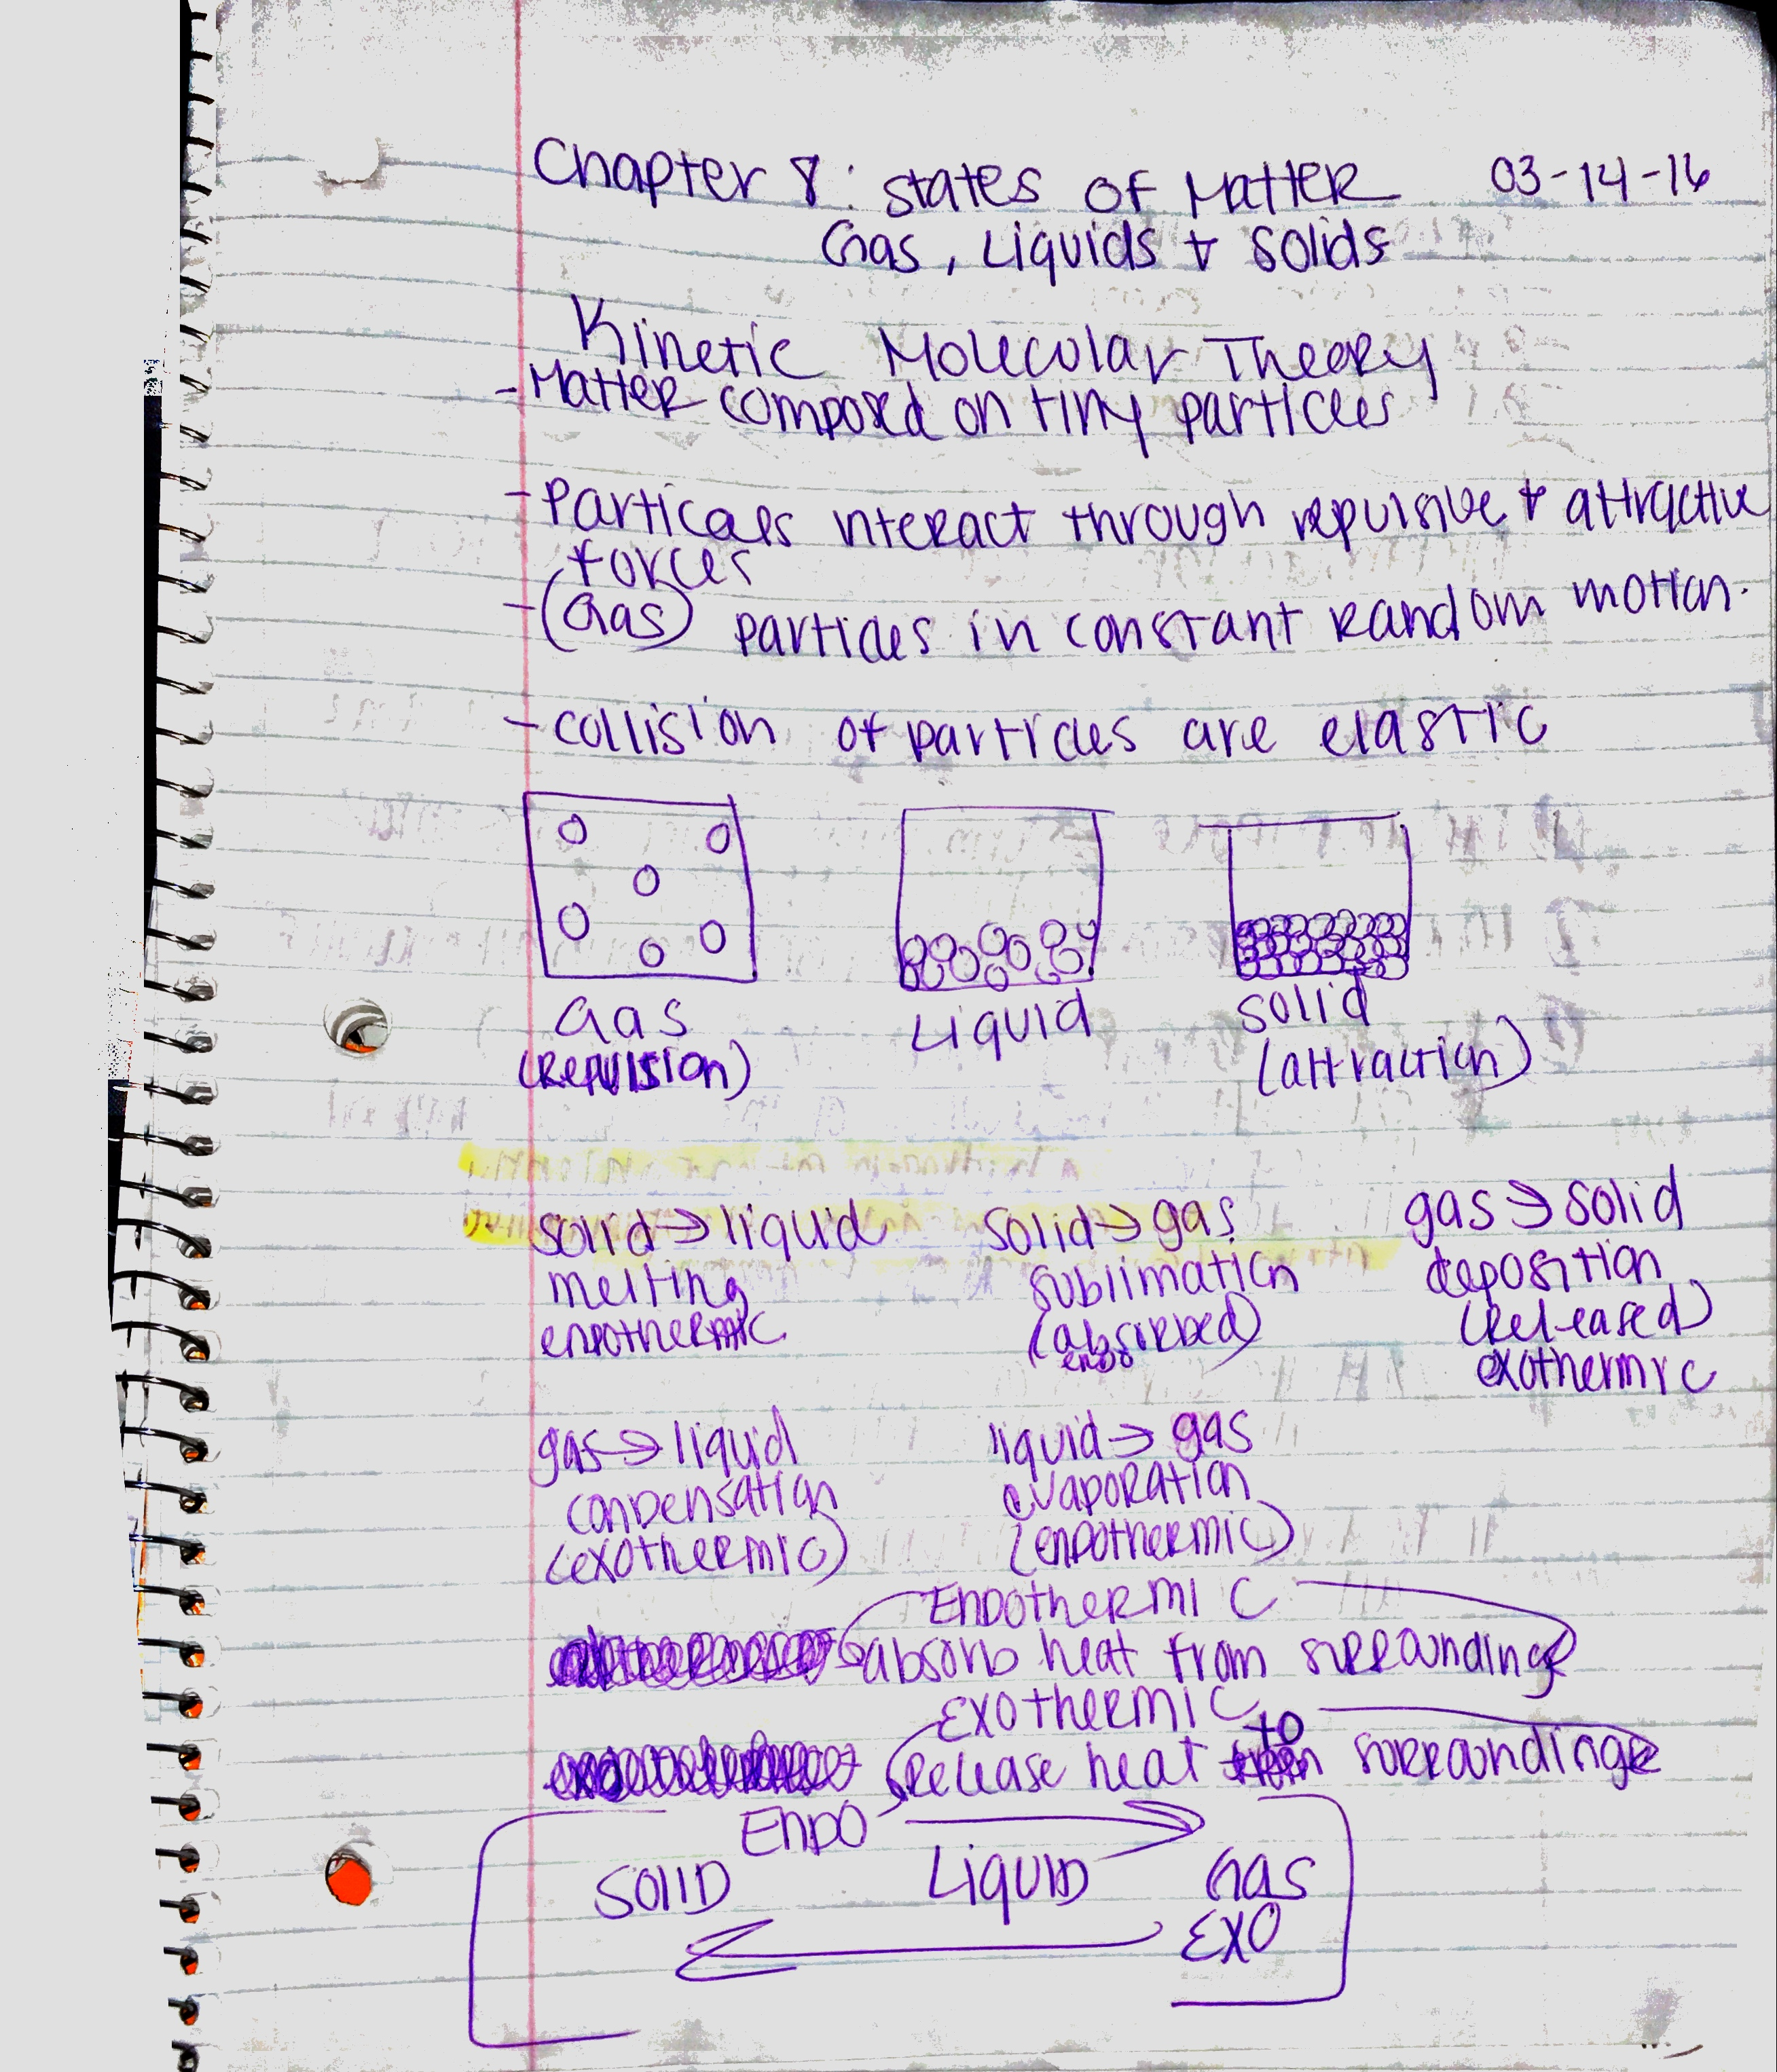 Chapter 8: States of Matter 03-14-16
Gas, Liquids + Solids
Kinetic Molecular Theory
- Matter composed on tiny particles
- Particals interact through repulsive + attractive
forces
- (Gas) particles in constant random motion.
- collision of particles are elastic
Gas Liquid Solid
(Repulsion) (attraction)
solid → liquid solid → gas gas → solid
melting sublimation deposition
endothermic (absorbed) (Released)
endo exothermic
gas → liquid liquid → gas
condensation evaporation
(exothermic) (endothermic)
Endothermic
absorb heat from surroundings
Exothermic
Release heat to surroundings
Endo
Solid Liquid Gas
Exo